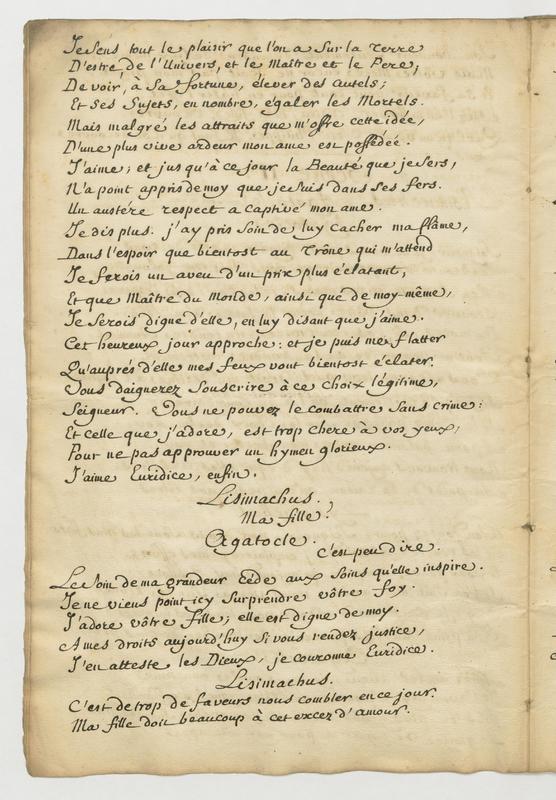 Je sens tout le plaisir que l'on a sur la Terre
D'estre de l'Univers, et le Maître et le Pere;
De voir, à Sa fortune, élever des autels;
Et ses Sujets, en nombre, égaler les Mortels.
Mais malgré les attraits que m'offre cette idée,
D'une plus vive ardeur mon ame est possédée.
J'aime; et jusqu'à ce jour la Beauté que je sers,
N'a point appris de moy que je suis dans ses fers.
Un austére respect a captivé mon ame.
Je dis plus. j'ay pris soin de luy cacher ma flâme,
Dans l'espoir que bientost au Trône qui m'attend
Je ferois un aveu d'un prix plus éclatant,
Et que Maître du Monde, ainsi que de moy-même,
Je serois digne d'elle, en luy disant que j'aime.
Cet heureux jour approche: et je puis me flatter
Qu'auprés d'elle mes feux vont bientost éclater.
Vous daignerez souscrire à ce choix légitime,
Seigneur. Vous ne pouvez le combattre sans crime:
Et celle que j'adore, est trop chere à vos yeux,
Pour ne pas approuver un hymen glorieux.
J'aime Euridice, enfin.
Lisimachus.
Ma fille?
Agatocle.
C'est peu dire.
Le soin de ma grandeur cede aux soins qu'elle inspire.
Je ne viens point icy surprendre vôtre foy.
J'adore vôtre fille; elle est digne de moy.
A mes droits aujourd'huy si vous rendez justice,
J'en atteste les Dieux, je couronne Euridice.
Lisimachus.
C'est de trop de faveurs nous combler en ce jour.
Ma fille doit beaucoup à cet excez d'amour.